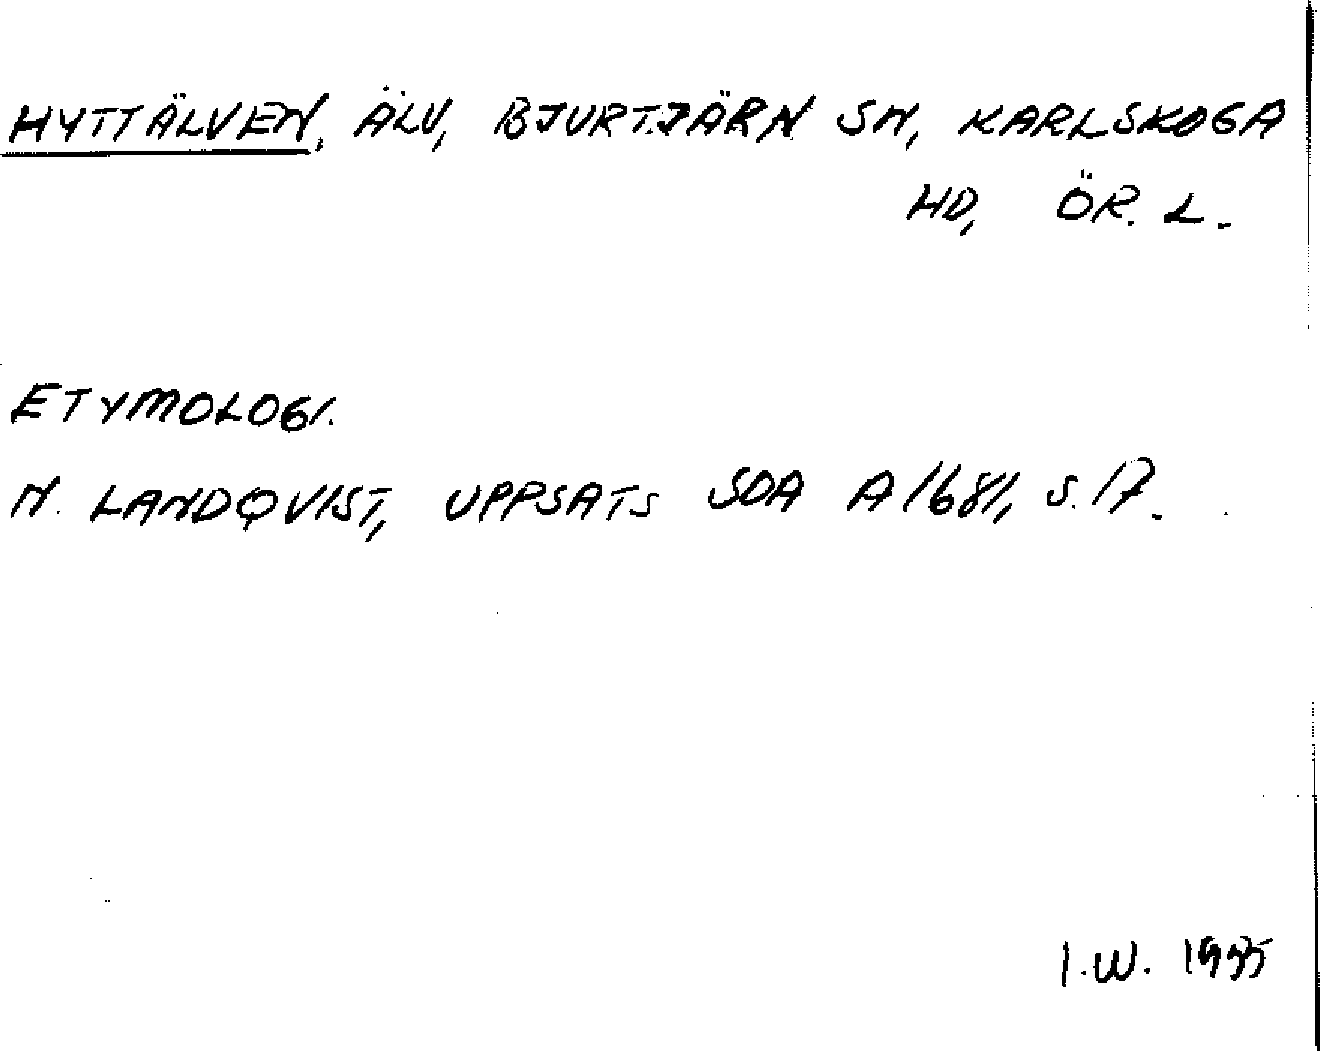 HYTTÄLVEN, ÄLV, BJURTJÄRN SN, KARLSKOGA
HD, ÖR. L.
ETYMOLOGI.
N. LANDQVIST, UPPSATS SOA A1681, S. 17.
I.W.